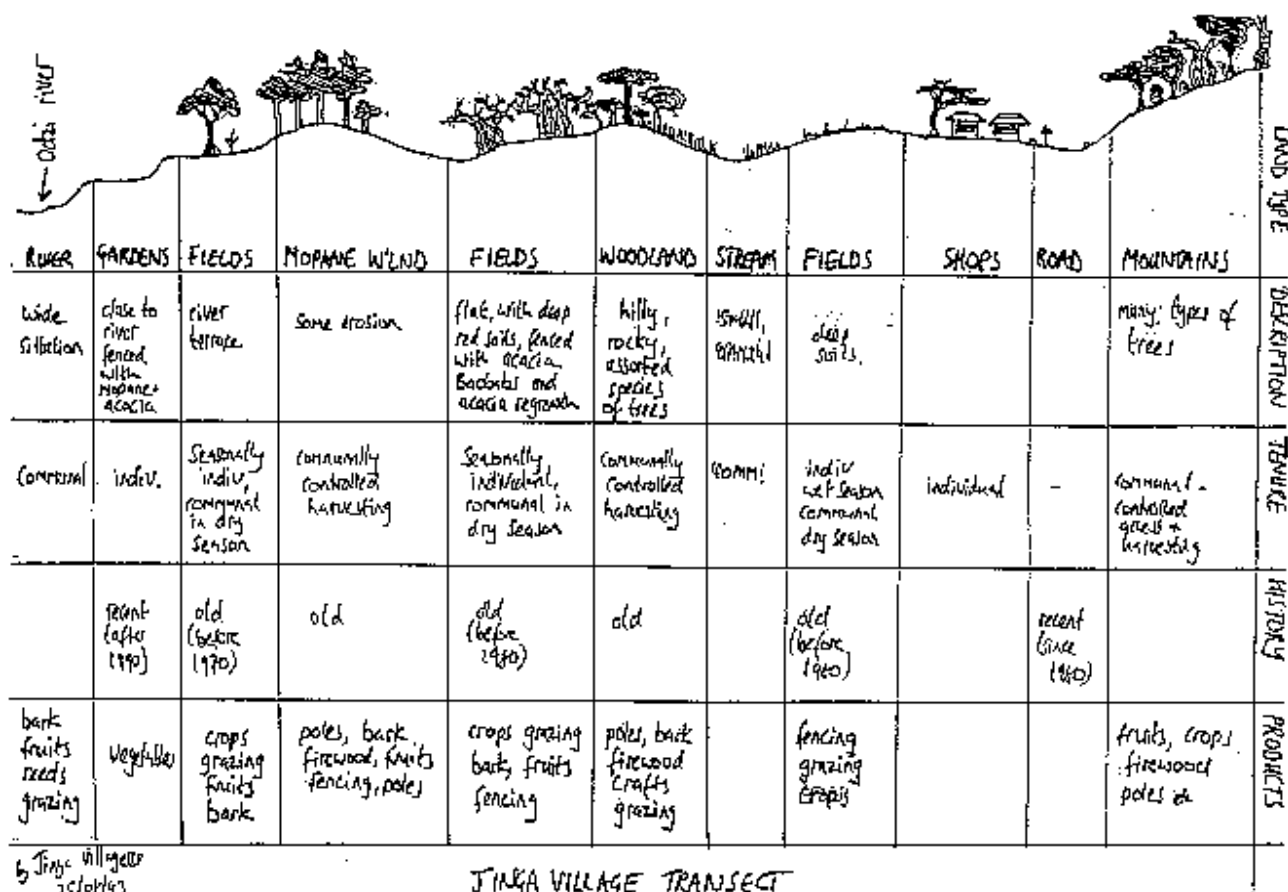 odzi river
LAND TYPE
RIVER GARDENS FIELDS MOPANE W'LND FIELDS WOODLAND STREAM FIELDS SHOPS ROAD MOUNTAINS
DESCRIPTION
wide
siltation
close to
river
fenced
with
Mopane +
acacia
river
terrace
some erosion
flat, with deep
red soils, fenced
with acacia
Baobabs and
acacia regrowth
hilly,
rocky,
assorted
species
of trees
small,
deep
soils.
many types of
trees
TENURE
Communal
indiv.
Seasonally
indiv,
communal
in dry
season
communally
controlled
harvesting
Seasonally
individual,
communal in
dry season
Communally
controlled
harvesting
indiv
wet season
communal
dry season
individual
-
communal -
controlled
access +
harvesting
HISTORY
recent
(after
1990)
old
(before
1970)
old
old
(before
1980)
old
old
(before
1960)
recent
(since
1960)
PRODUCTS
bark
fruits
reeds
grazing
vegetables
crops
grazing
fruits
bark
poles, bark
firewood, fruits
fencing, poles
crops grazing
bark, fruits
fencing
poles, bark
firewood
crafts
grazing
fencing
grazing
crops
fruits, crops
firewood
poles
by Jinga villagers
JINGA VILLAGE TRANSECT